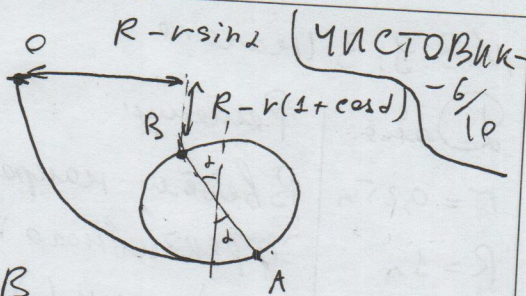 O
R-rsinα
ЧИСТОВИК-
-6/10
R-r(1+cosα)
B
α
α
A
B